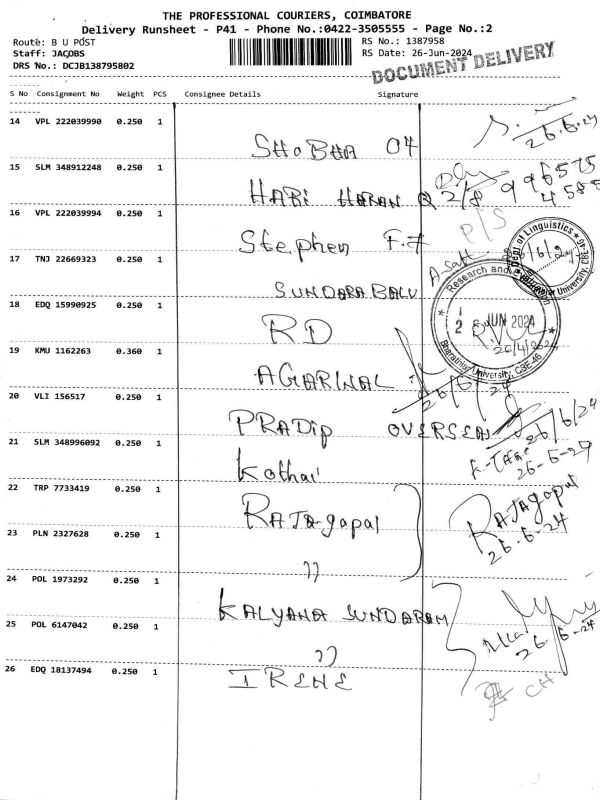 THE PROFESSIONAL COURIERS, COIMBATORE
Delivery Runsheet - P41 - Phone No.:0422-3505555 - Page No.:2
Route: B U POST
RS No.: 1387958
Staff: JACOBS
RS Date: 26-Jun-2024
DRS No.: DCJB138795802
DOCUMENT DELIVERY
S No Consignment No Weight PCS Consignee Details Signature
14 VPL 222039990 0.250 1
SHOBHA 04
26.6.24
15 SLM 348912248 0.250 1
HARI HARAN Q 2/8 996575
4585
16 VPL 222039994 0.250 1
P/S
Stephen F.7
17 TNJ 22669323 0.250 1
SUNDARA BALU
Dept of Linguistics
18 EDQ 15990925 0.250 1
RD
Research and
26 JUN 2024
Bharathiar University, CBE-46
19 KMU 1162263 0.360 1
AGARWAL
26/6/24
20 VLI 156517 0.250 1
PRADIP OVERSEAS
26/6/24
21 SLM 348996092 0.250 1
Kothai
26-6-24
22 TRP 7733419 0.250 1
RAJAgopal
RAJAgopal
26.6.24
23 PLN 2327628 0.250 1
"
24 POL 1973292 0.250 1
KALYANA SUNDARAM
25 POL 6147042 0.250 1
26-6-24
"
26 EDQ 18137494 0.250 1
IRENE
CH